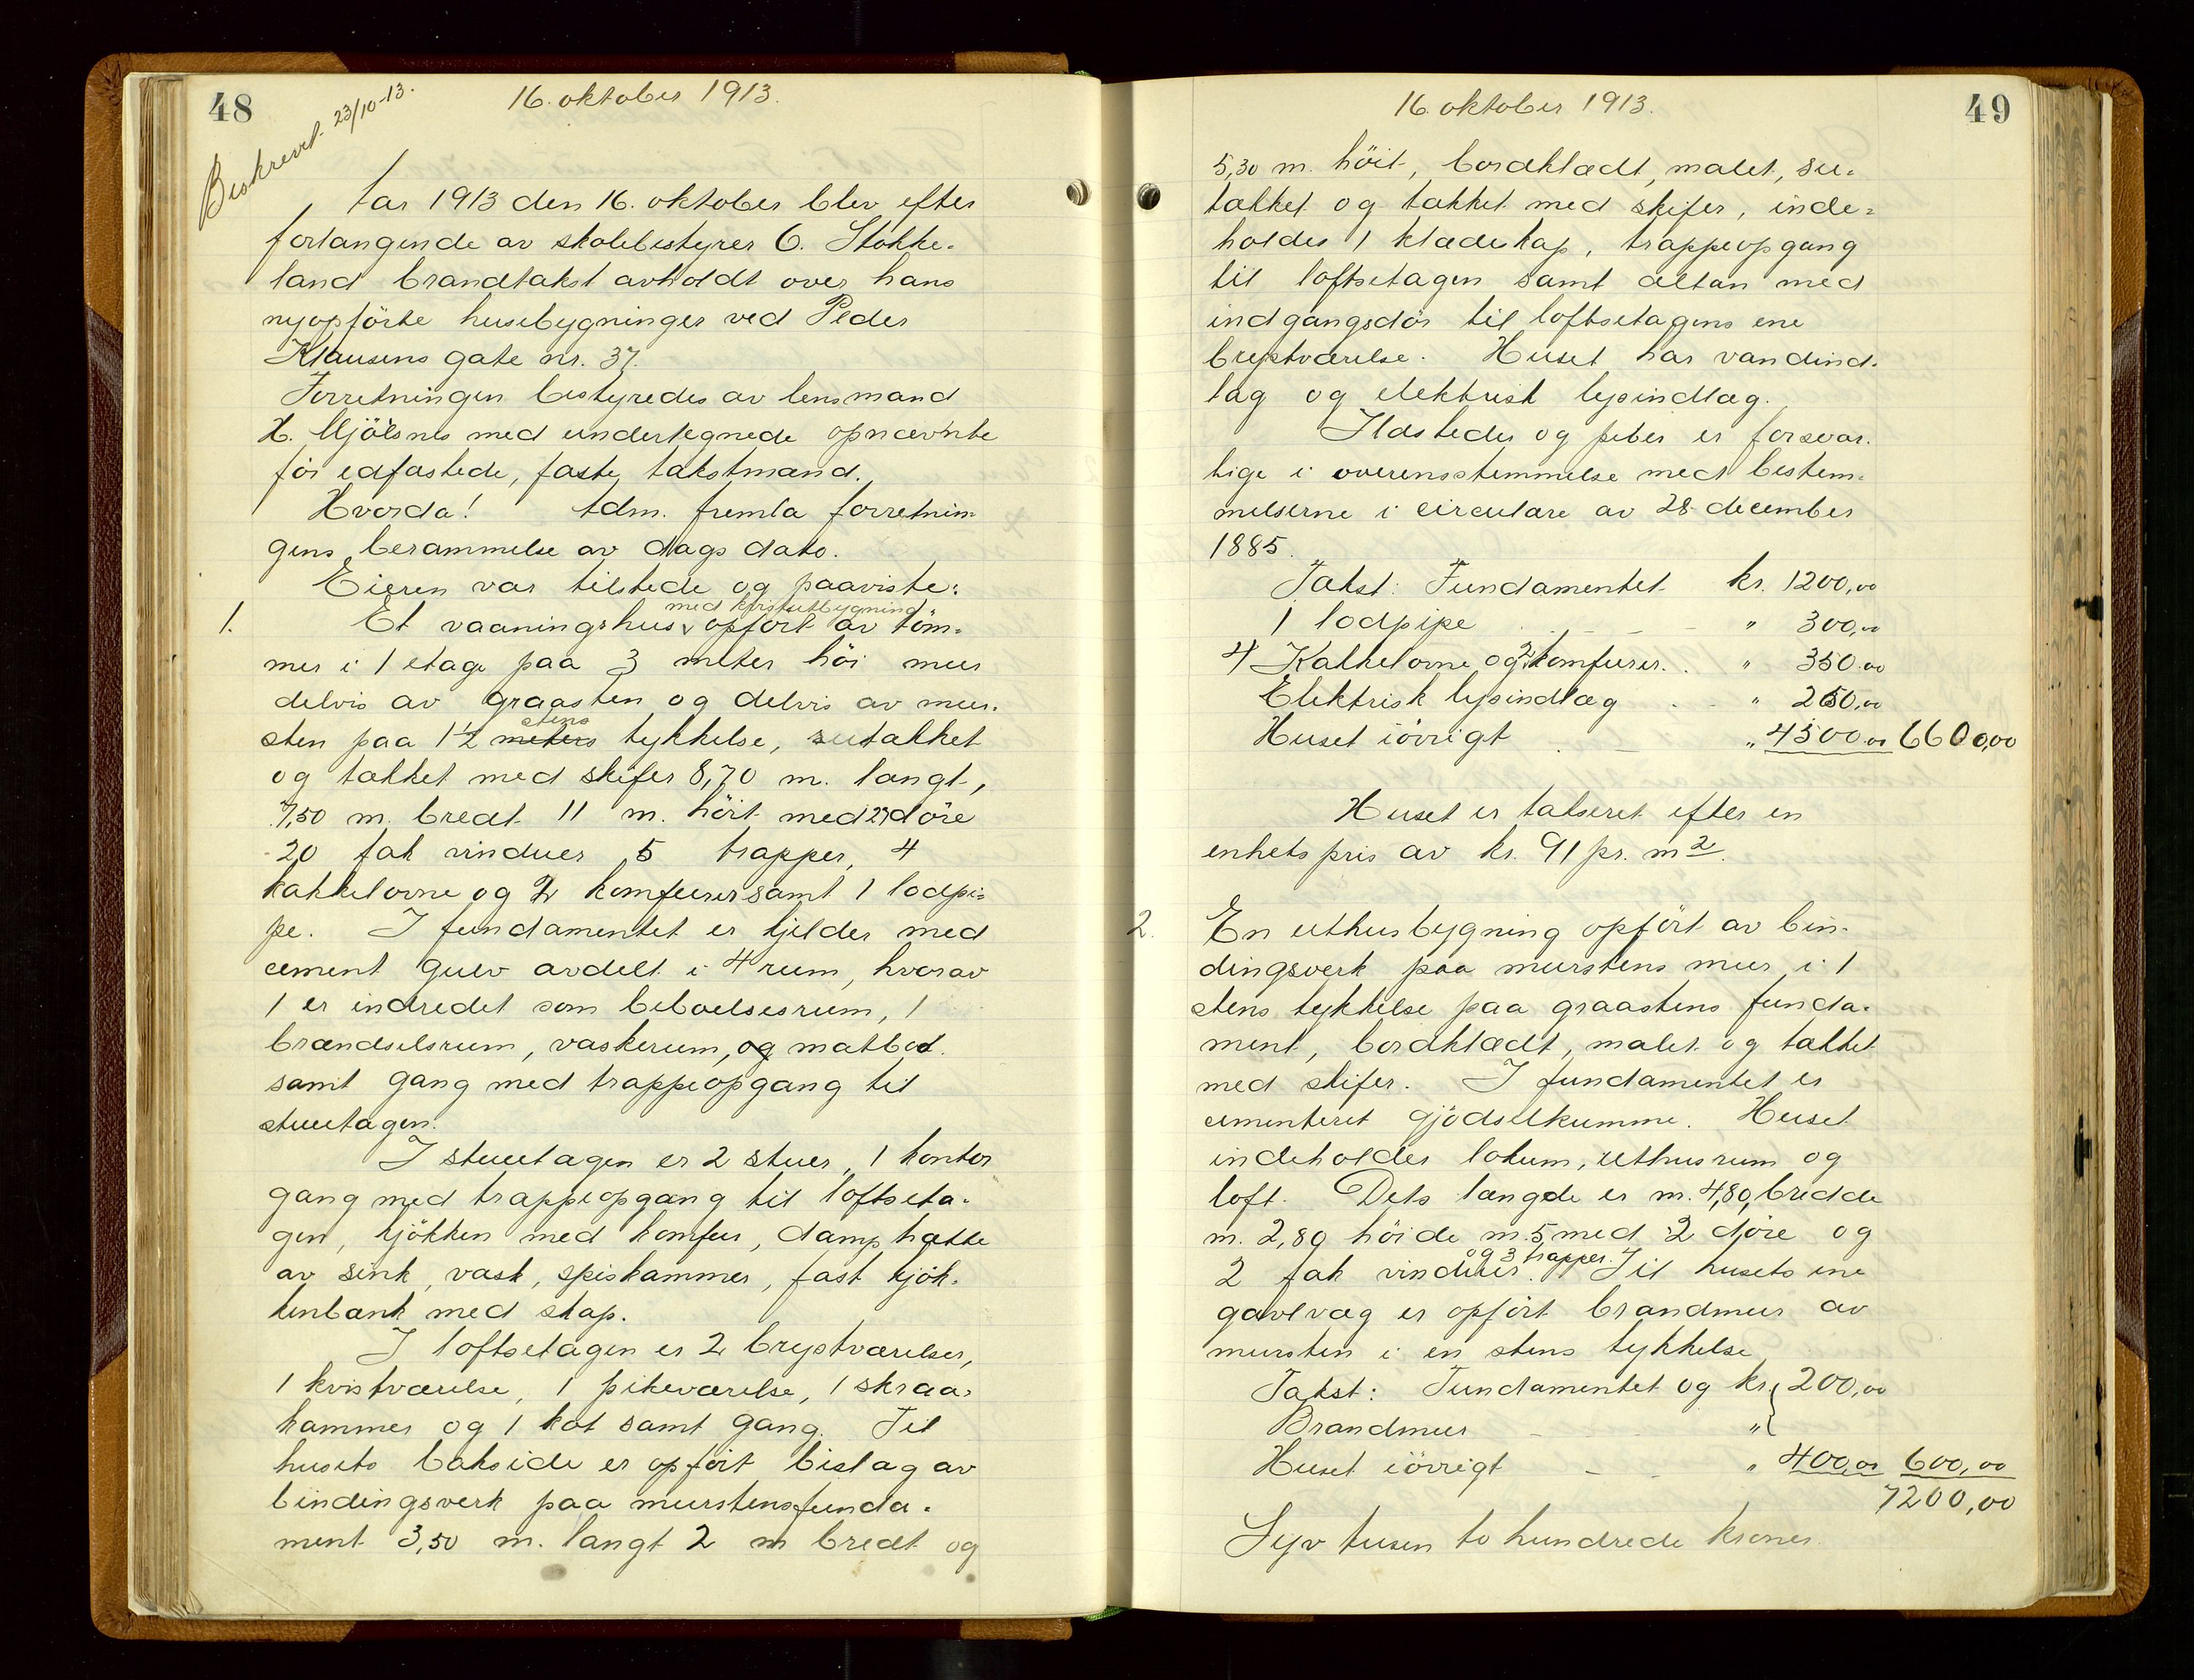 48
16. oktober 1913.
Beskrevet 23/10-13.
Aar 1913 den 16. oktober blev efter
forlangende av skolebestyrer O. Stokke-
land brandtakst avholdt over hans
nyopförte husebygninger ved Peder
Klausens gate nr. 37.
Forretningen bestyredes av lensmand
H. Mjölsnes med undertegnede opnævnte
för edfæstede, faste takstmænd.
Hvorda! Adm. fremla forretnin-
gens berammelse av dags dato.
Eieren var tilstede og paaviste:
med kvistutbygning
1. Et vaaningshus opfört av töm-
mer i 1 etage paa 3 meter höi mur
delvis av graasten og delvis av mur-
stens
sten paa 1½ meters tykkelse, sutakket
og tækket med skifer 8,70 m. langt,
7,50 m. bredt 11 m. höit med 27 döre
20 fak vinduer 5 trapper, 4
kakkelovne og 2 komfurer samt 1 lodpi-
pe. I fundamentet er kjelder med
cement gulv avdelt i 4 rum, hvorav
1 er indredet som beboelsesrum, 1
brændselsrum, vaskerum, og matbod
samt gang med trappeopgang til
stueetagen.
I stueetagen er 2 stuer, 1 kontor
gang med trappeopgang til loftseta-
gen, kjökken med komfur, damphætte
av sink, vask, spiskammer, fast kjök-
kenbænk med skap.
I loftsetagen er 2 brystværelser,
1 kvistværelse, 1 pikeværelse, 1 skraa-
kammer og 1 kot samt gang. Til
husets bakside er opfört bislag av
bindingsverk paa murstensfunda-
ment 3,50 m. langt 2 m bredt og
16. oktober 1913.
49
5,30 m. höit, bordklædt, malet, su-
takket og tækket med skifer, inde-
holder 1 klædeskap, trappeopgang
til loftsetagen samt altan med
indgangsdör til loftsetagens ene
brystværelse. Huset har vandind-
læg og elektrisk lysindlæg.
Ildsteder og piber er forsvar-
lige i overensstemmelse med bestem-
melserne i circulære av 28 december
1885.
Takst: Fundamentet kr. 1200,00
1 lodpipe " 300,00
4 Kakkelovne og 2 komfurer " 350.00
Elektrisk lysindlæg " 250,00
Huset iövrigt " 4500.00 6600,00
Huset er takseret efter en
enhetspris av kr. 91 pr. m2.
2. En uthusbygning opfört av bin-
dingsverk paa murstens mur i 1
stens tykkelse paa graastens funda-
ment, bordklædt, malet og tækket
med skifer. I fundamentet er
cementeret gjödselkumme. Huset
indeholder lokum, uthusrum og
loft. Dets længde er m. 4,80, bredde
m. 2,80 höide m. 5 med 2 döre og
og 3 trapper.
2 fak vinduer. Til husets ene
gavlvæg er opfört brandmur av
mursten i en stens tykkelse
Takst: Fundamentet og kr. } 200,00
Brandmur " }
Huset iövrigt " 400,00 600,00
7200,00
Syv tusen to hundrede kroner.